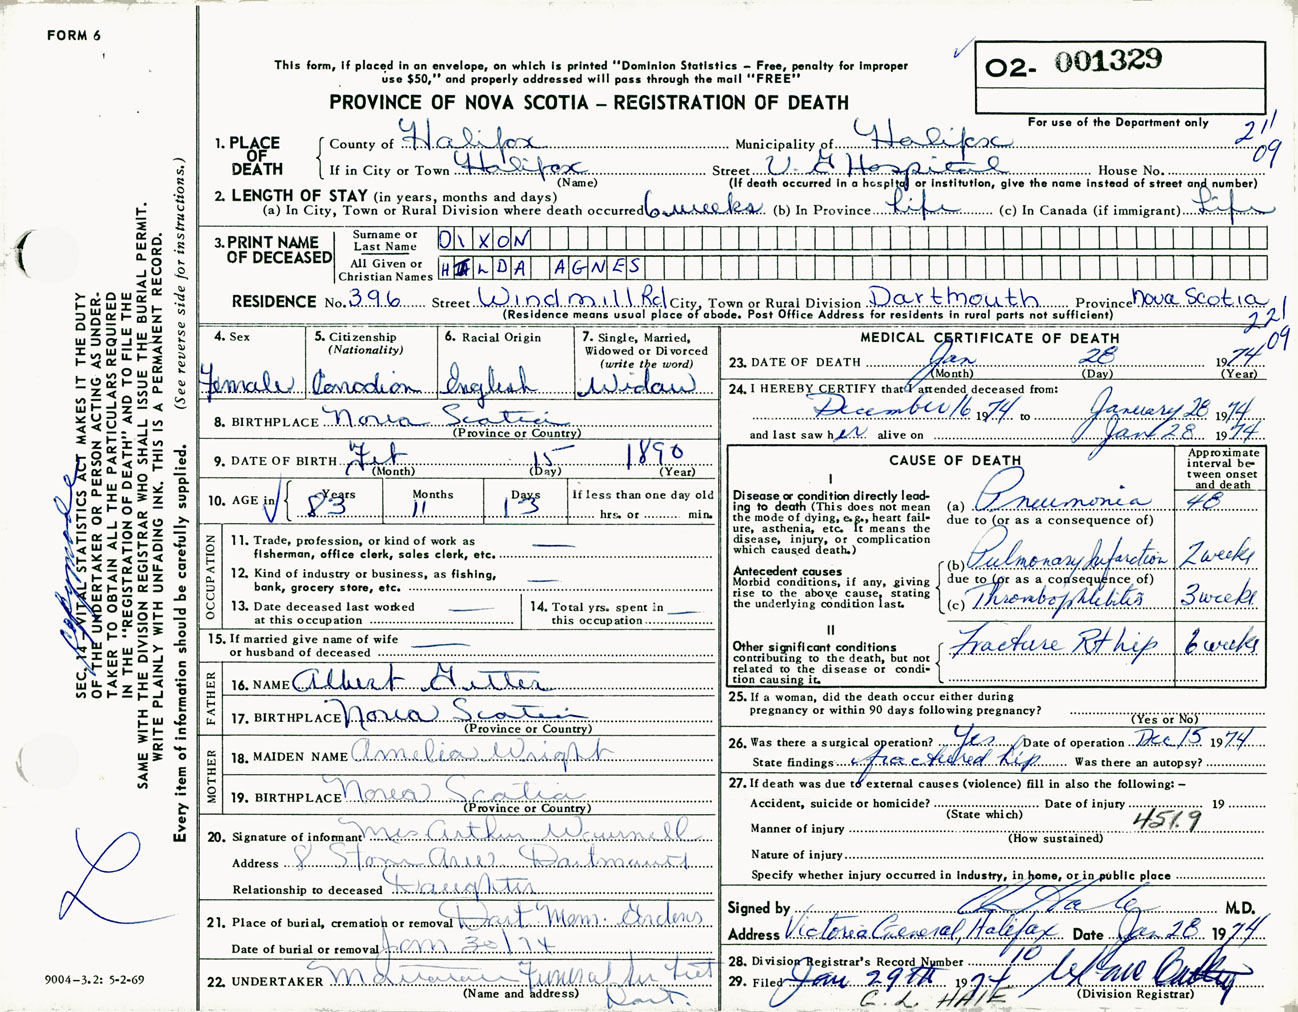 FORM 6
This form, if placed in an envelope, on which is printed "Dominion Statistics – Free, penalty for improper
use $50," and properly addressed will pass through the mail "FREE"
O2- 001329
PROVINCE OF NOVA SCOTIA – REGISTRATION OF DEATH
For use of the Department only
211
09
1. PLACE OF DEATH
County of Halifax Municipality of Halifax
If in City or Town Halifax Street V. G Hospital House No.
(Name) (If death occurred in a hospital or institution, give the name instead of street and number)
2. LENGTH OF STAY (in years, months and days)
(a) In City, Town or Rural Division where death occurred 6 weeks (b) In Province Life (c) In Canada (if immigrant) Life
3. PRINT NAME OF DECEASED
Surname or Last Name DIXON
All Given or Christian Names HILDA AGNES
RESIDENCE No. 396 Street Windmill Rd City, Town or Rural Division Dartmouth Province Nova Scotia
(Residence means usual place of abode. Post Office Address for residents in rural parts not sufficient)
221
09
4. Sex Female
5. Citizenship (Nationality) Canadian
6. Racial Origin English
7. Single, Married, Widowed or Divorced (write the word) Widow
8. BIRTHPLACE Nova Scotia
(Province or Country)
9. DATE OF BIRTH Feb 15 1890
(Month) (Day) (Year)
10. AGE in Years 83 Months 11 Days 13 If less than one day old
hrs. or min.
OCCUPATION
11. Trade, profession, or kind of work as
fisherman, office clerk, sales clerk, etc. —
12. Kind of industry or business, as fishing,
bank, grocery store, etc. —
13. Date deceased last worked
at this occupation —
14. Total yrs. spent in
this occupation —
15. If married give name of wife
or husband of deceased —
FATHER
16. NAME Albert
17. BIRTHPLACE Nova Scotia
(Province or Country)
MOTHER
18. MAIDEN NAME Amelia Wright
19. BIRTHPLACE Nova Scotia
(Province or Country)
20. Signature of informant Mrs Arthur
Address 8 Dartmouth
Relationship to deceased Daughter
21. Place of burial, cremation or removal Dart. Mem. Grdens
Date of burial or removal Jan 30/74
22. UNDERTAKER Funeral
(Name and address) Dart.
MEDICAL CERTIFICATE OF DEATH
23. DATE OF DEATH Jan 28 1974
(Month) (Day) (Year)
24. I HEREBY CERTIFY that I attended deceased from:
December 16 1974 to January 28 1974
and last saw her alive on Jan 28 1974
CAUSE OF DEATH
Approximate interval between onset and death
I
Disease or condition directly leading to death (This does not
mean the mode of dying, e.g., heart failure, asthenia, etc. It means the
disease, injury, or complication
which caused death.)
(a) Pneumonia 48
due to (or as a consequence of)
Antecedent causes
Morbid conditions, if any, giving
rise to the above cause, stating
the underlying condition last.
(b) Pulmonary Infarction 2 weeks
due to (or as a consequence of)
(c) Thrombophlebitis 3 weeks
II
Other significant conditions
contributing to the death, but not
related to the disease or condition causing it.
Fracture Rt hip 6 weeks
25. If a woman, did the death occur either during
pregnancy or within 90 days following pregnancy?
(Yes or No)
26. Was there a surgical operation? Yes Date of operation Dec 15 1974
State findings fractured hip Was there an autopsy?
27. If death was due to external causes (violence) fill in also the following: –
Accident, suicide or homicide? Date of injury 19
(State which)
Manner of injury 451.9
(How sustained)
Nature of injury
Specify whether injury occurred in industry, in home, or in public place
Signed by M.D.
Address Victoria General, Halifax Date Jan 28 1974
28. Division Registrar's Record Number 10
29. Filed Jan 29th 1974
(Division Registrar)
SEC. 14 – VITAL STATISTICS ACT MAKES IT THE DUTY
OF THE UNDERTAKER OR PERSON ACTING AS UNDERTAKER
TO OBTAIN ALL THE PARTICULARS REQUIRED
IN THE "REGISTRATION OF DEATH" AND TO FILE THE
SAME WITH THE DIVISION REGISTRAR WHO SHALL ISSUE THE BURIAL PERMIT.
WRITE PLAINLY WITH UNFADING INK. THIS IS A PERMANENT RECORD.
Every item of information should be carefully supplied. (See reverse side for instructions.)
9004–3.2: 5-2-69